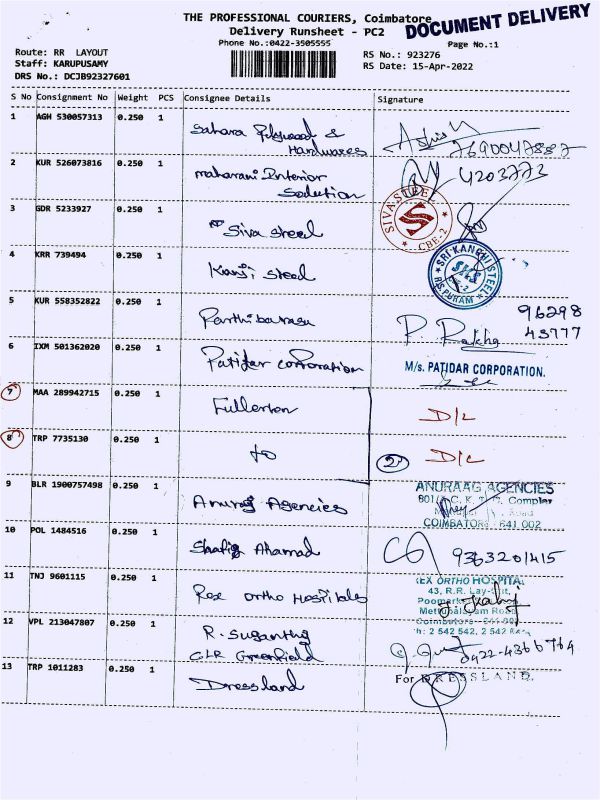 THE PROFESSIONAL COURIERS, Coimbatore
DOCUMENT DELIVERY
Delivery Runsheet - PC2
Phone No.:0422-3505555
Page No.:1
Route: RR LAYOUT
RS No.: 923276
Staff: KARUPUSAMY
RS Date: 15-Apr-2022
DRS No.: DCJB92327601
S No Consignment No Weight PCS Consignee Details Signature
1 AGH 530057313 0.250 1 Sahara Plywood &
Hardwares
2 KUR 526073816 0.250 1 maharani Interior 4203773
Solution
3 GDR 5233927 0.250 1 Siva steel SIVA STEEL CBE-2
4 KRR 739494 0.250 1 Kanji Steel SRI KANCHI STEEL R.S. PURAM
5 KUR 558352822 0.250 1 96298
43777
6 IXM 501362020 0.250 1 Patidar corporation M/s. PATIDAR CORPORATION.
7 MAA 289942715 0.250 1 Fullerton D/L
8 TRP 7735130 0.250 1 to 2 D/L
9 BLR 1900757498 0.250 1 Anurag Agencies ANURAAG AGENCIES
COIMBATORE 641 002
10 POL 1484516 0.250 1 Shafiq Ahamad 9363201415
11 TNJ 9601115 0.250 1 Rex ortho Hospitales REX ORTHO HOSPITAL
43, R.R. Lay-out,
Mettupalayam Road
Ph: 2 542 542, 2 542
12 VPL 213047807 0.250 1 R. Suganthy
G.L.R Greenfield 0422-4366764
13 TRP 1011283 0.250 1 Dressland For DRESSLAND.